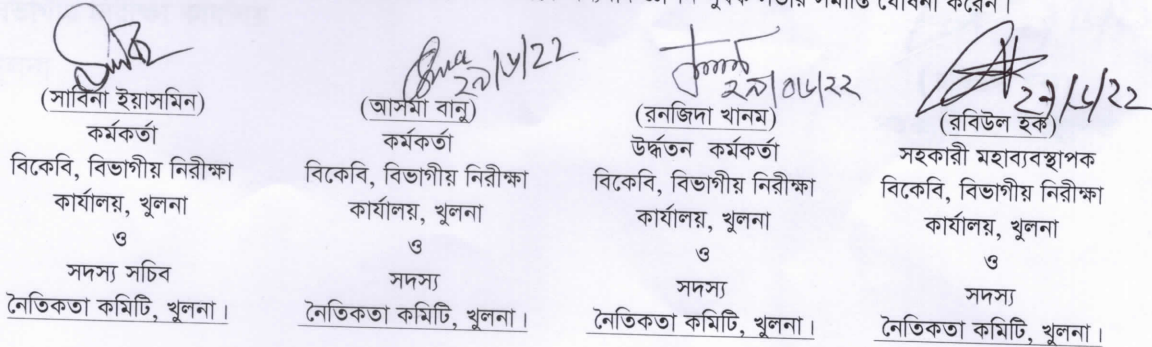 সভার সমাপ্তি ঘোষনা করেন।
২৯/৮/২২
২৯/০৮/২২
২৯/৮/২২
(সাবিনা ইয়াসমিন)
কর্মকর্তা
বিকেবি, বিভাগীয় নিরীক্ষা
কার্যালয়, খুলনা
ও
সদস্য সচিব
নৈতিকতা কমিটি, খুলনা।
(আসমা বানু)
কর্মকর্তা
বিকেবি, বিভাগীয় নিরীক্ষা
কার্যালয়, খুলনা
ও
সদস্য
নৈতিকতা কমিটি, খুলনা।
(রনজিদা খানম)
উর্দ্ধতন কর্মকর্তা
বিকেবি, বিভাগীয় নিরীক্ষা
কার্যালয়, খুলনা
ও
সদস্য
নৈতিকতা কমিটি, খুলনা।
(রবিউল হক)
সহকারী মহাব্যবস্থাপক
বিকেবি, বিভাগীয় নিরীক্ষা
কার্যালয়, খুলনা
ও
সদস্য
নৈতিকতা কমিটি, খুলনা।